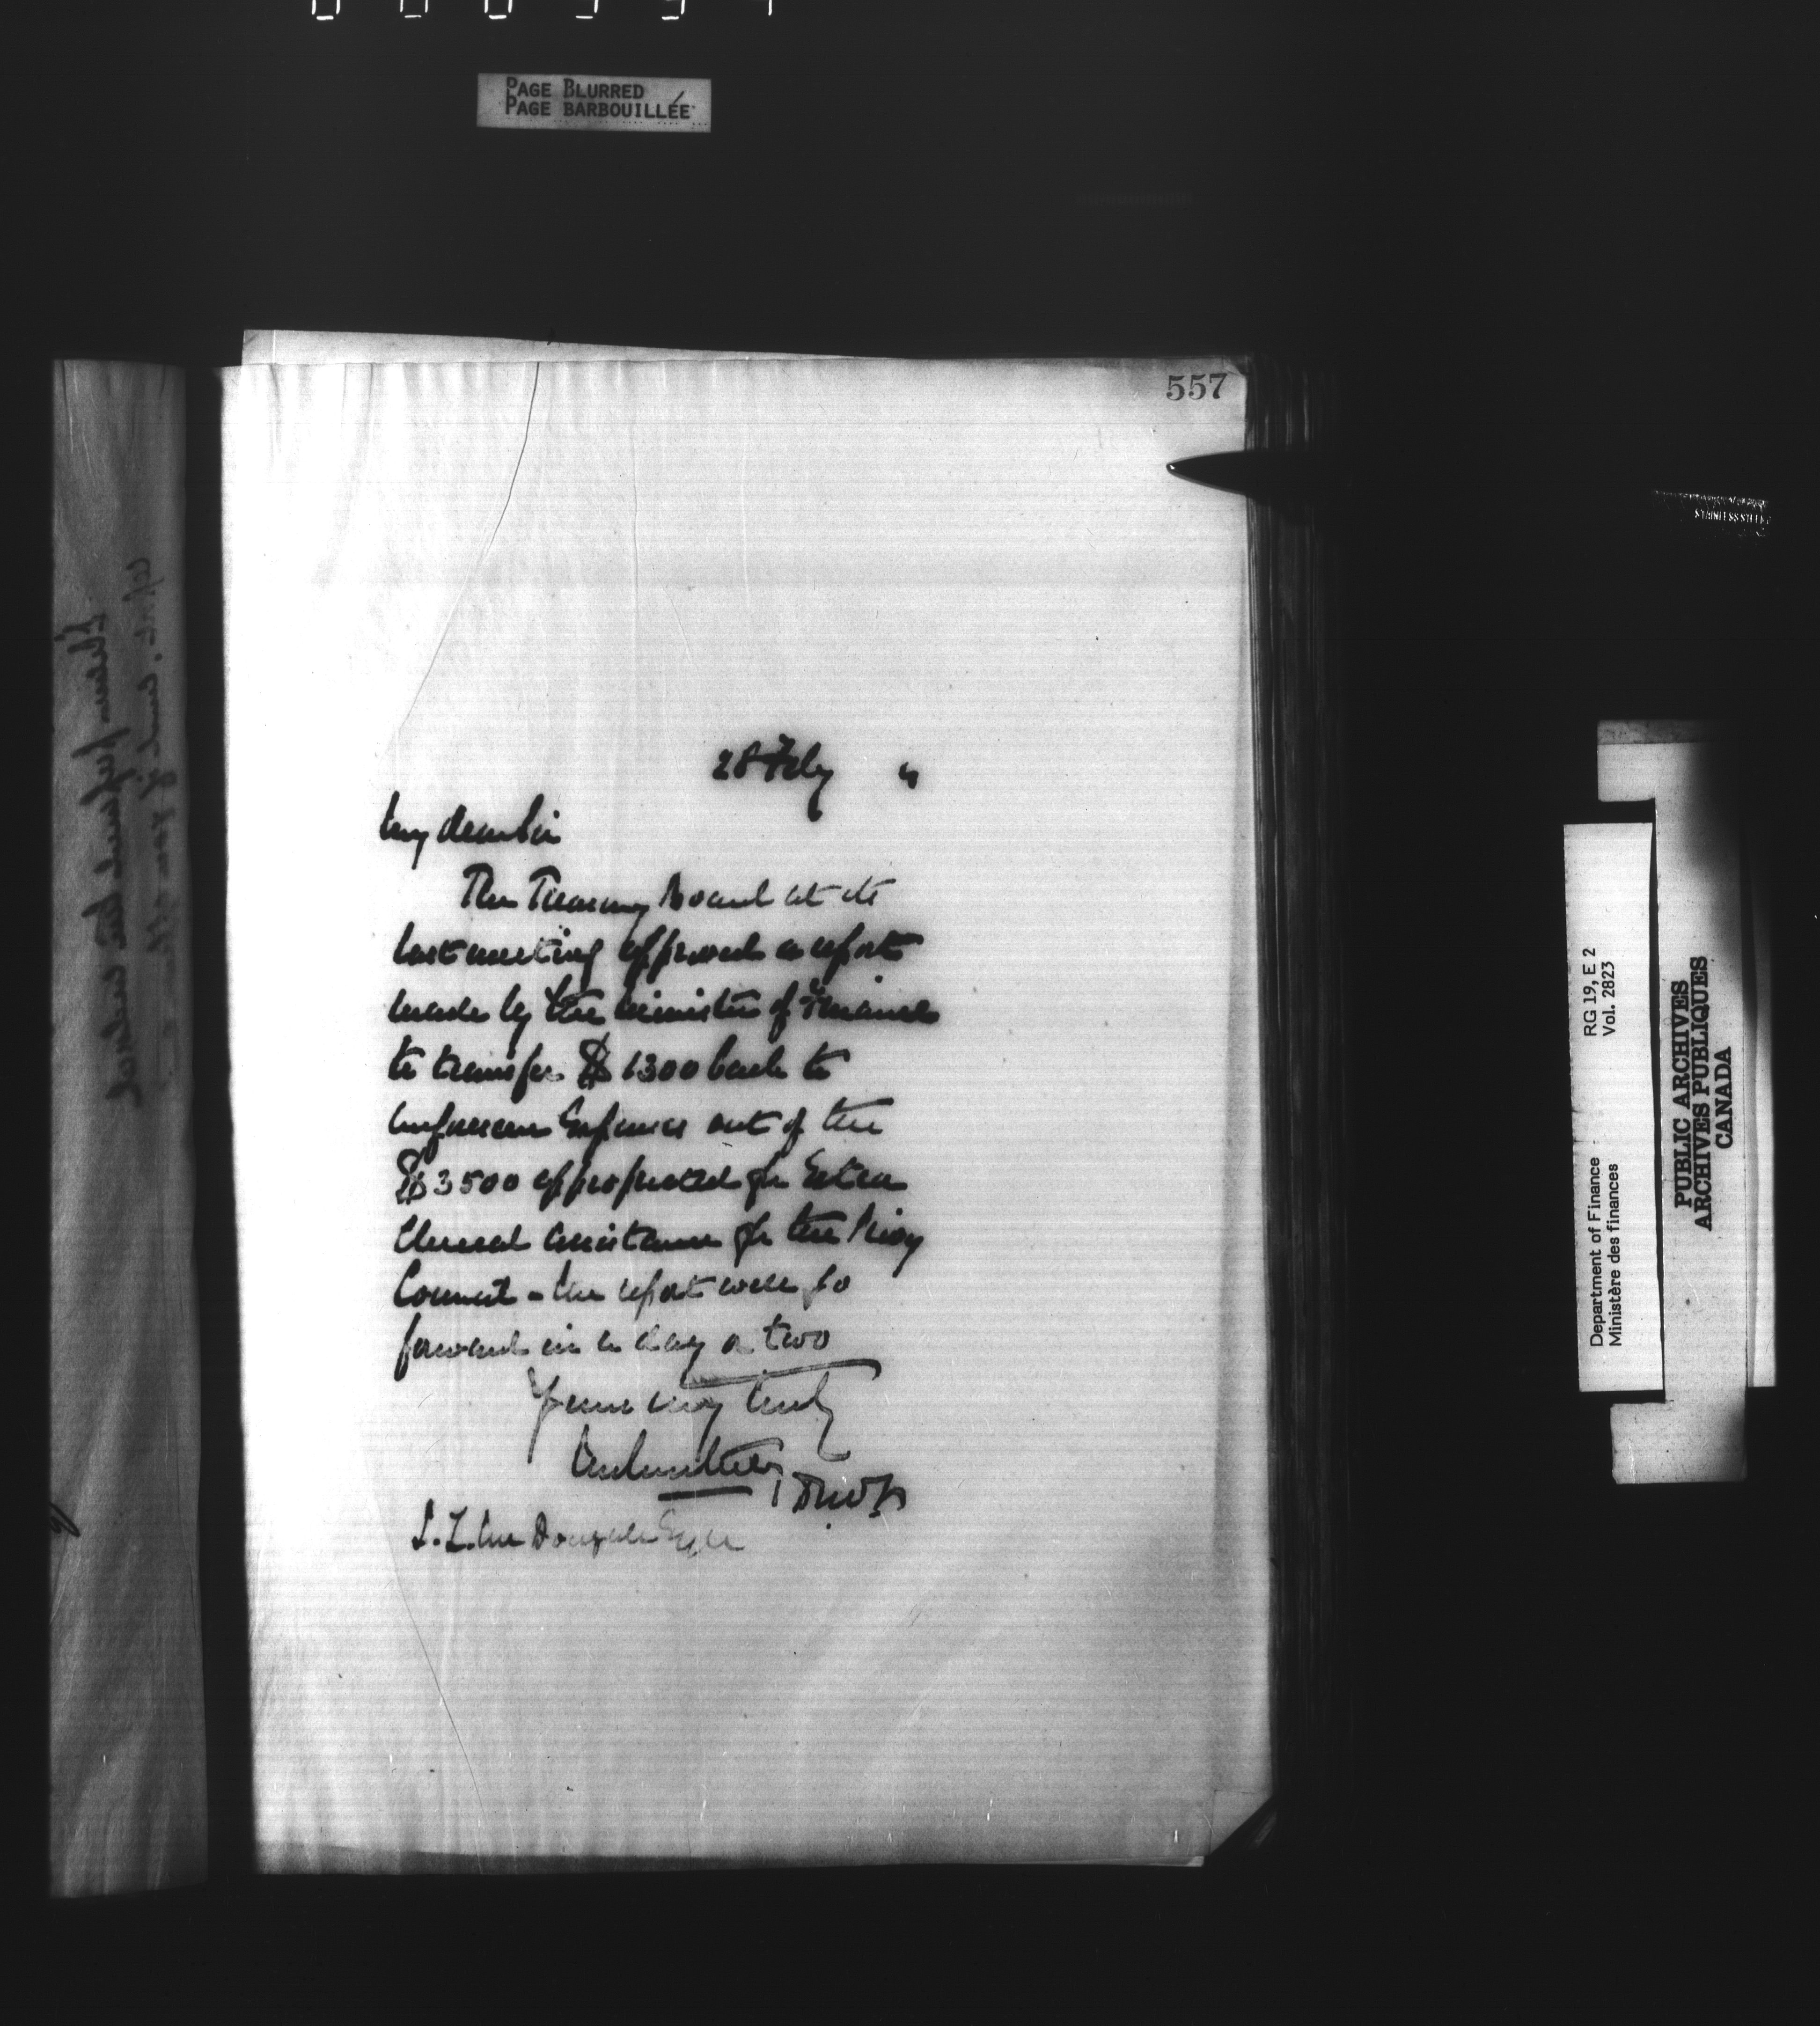 PAGE BLURRED
PAGE BARBOUILLÉE
557
28 Feby
My dear Sir
The Treasury Board at its
last meeting approved a report
made by the Minister of Finance
to transfer $1300 back to
unforeseen Expenses out of the
$3500 appropriated for Extra
Clerical assistance for the Privy
Council - the report will go
forward in a day or two
Yours very truly
J. L. McDougall Esqre
RG 19, E 2
Vol. 2823
Department of Finance
Ministère des finances
PUBLIC ARCHIVES
ARCHIVES PUBLIQUES
CANADA